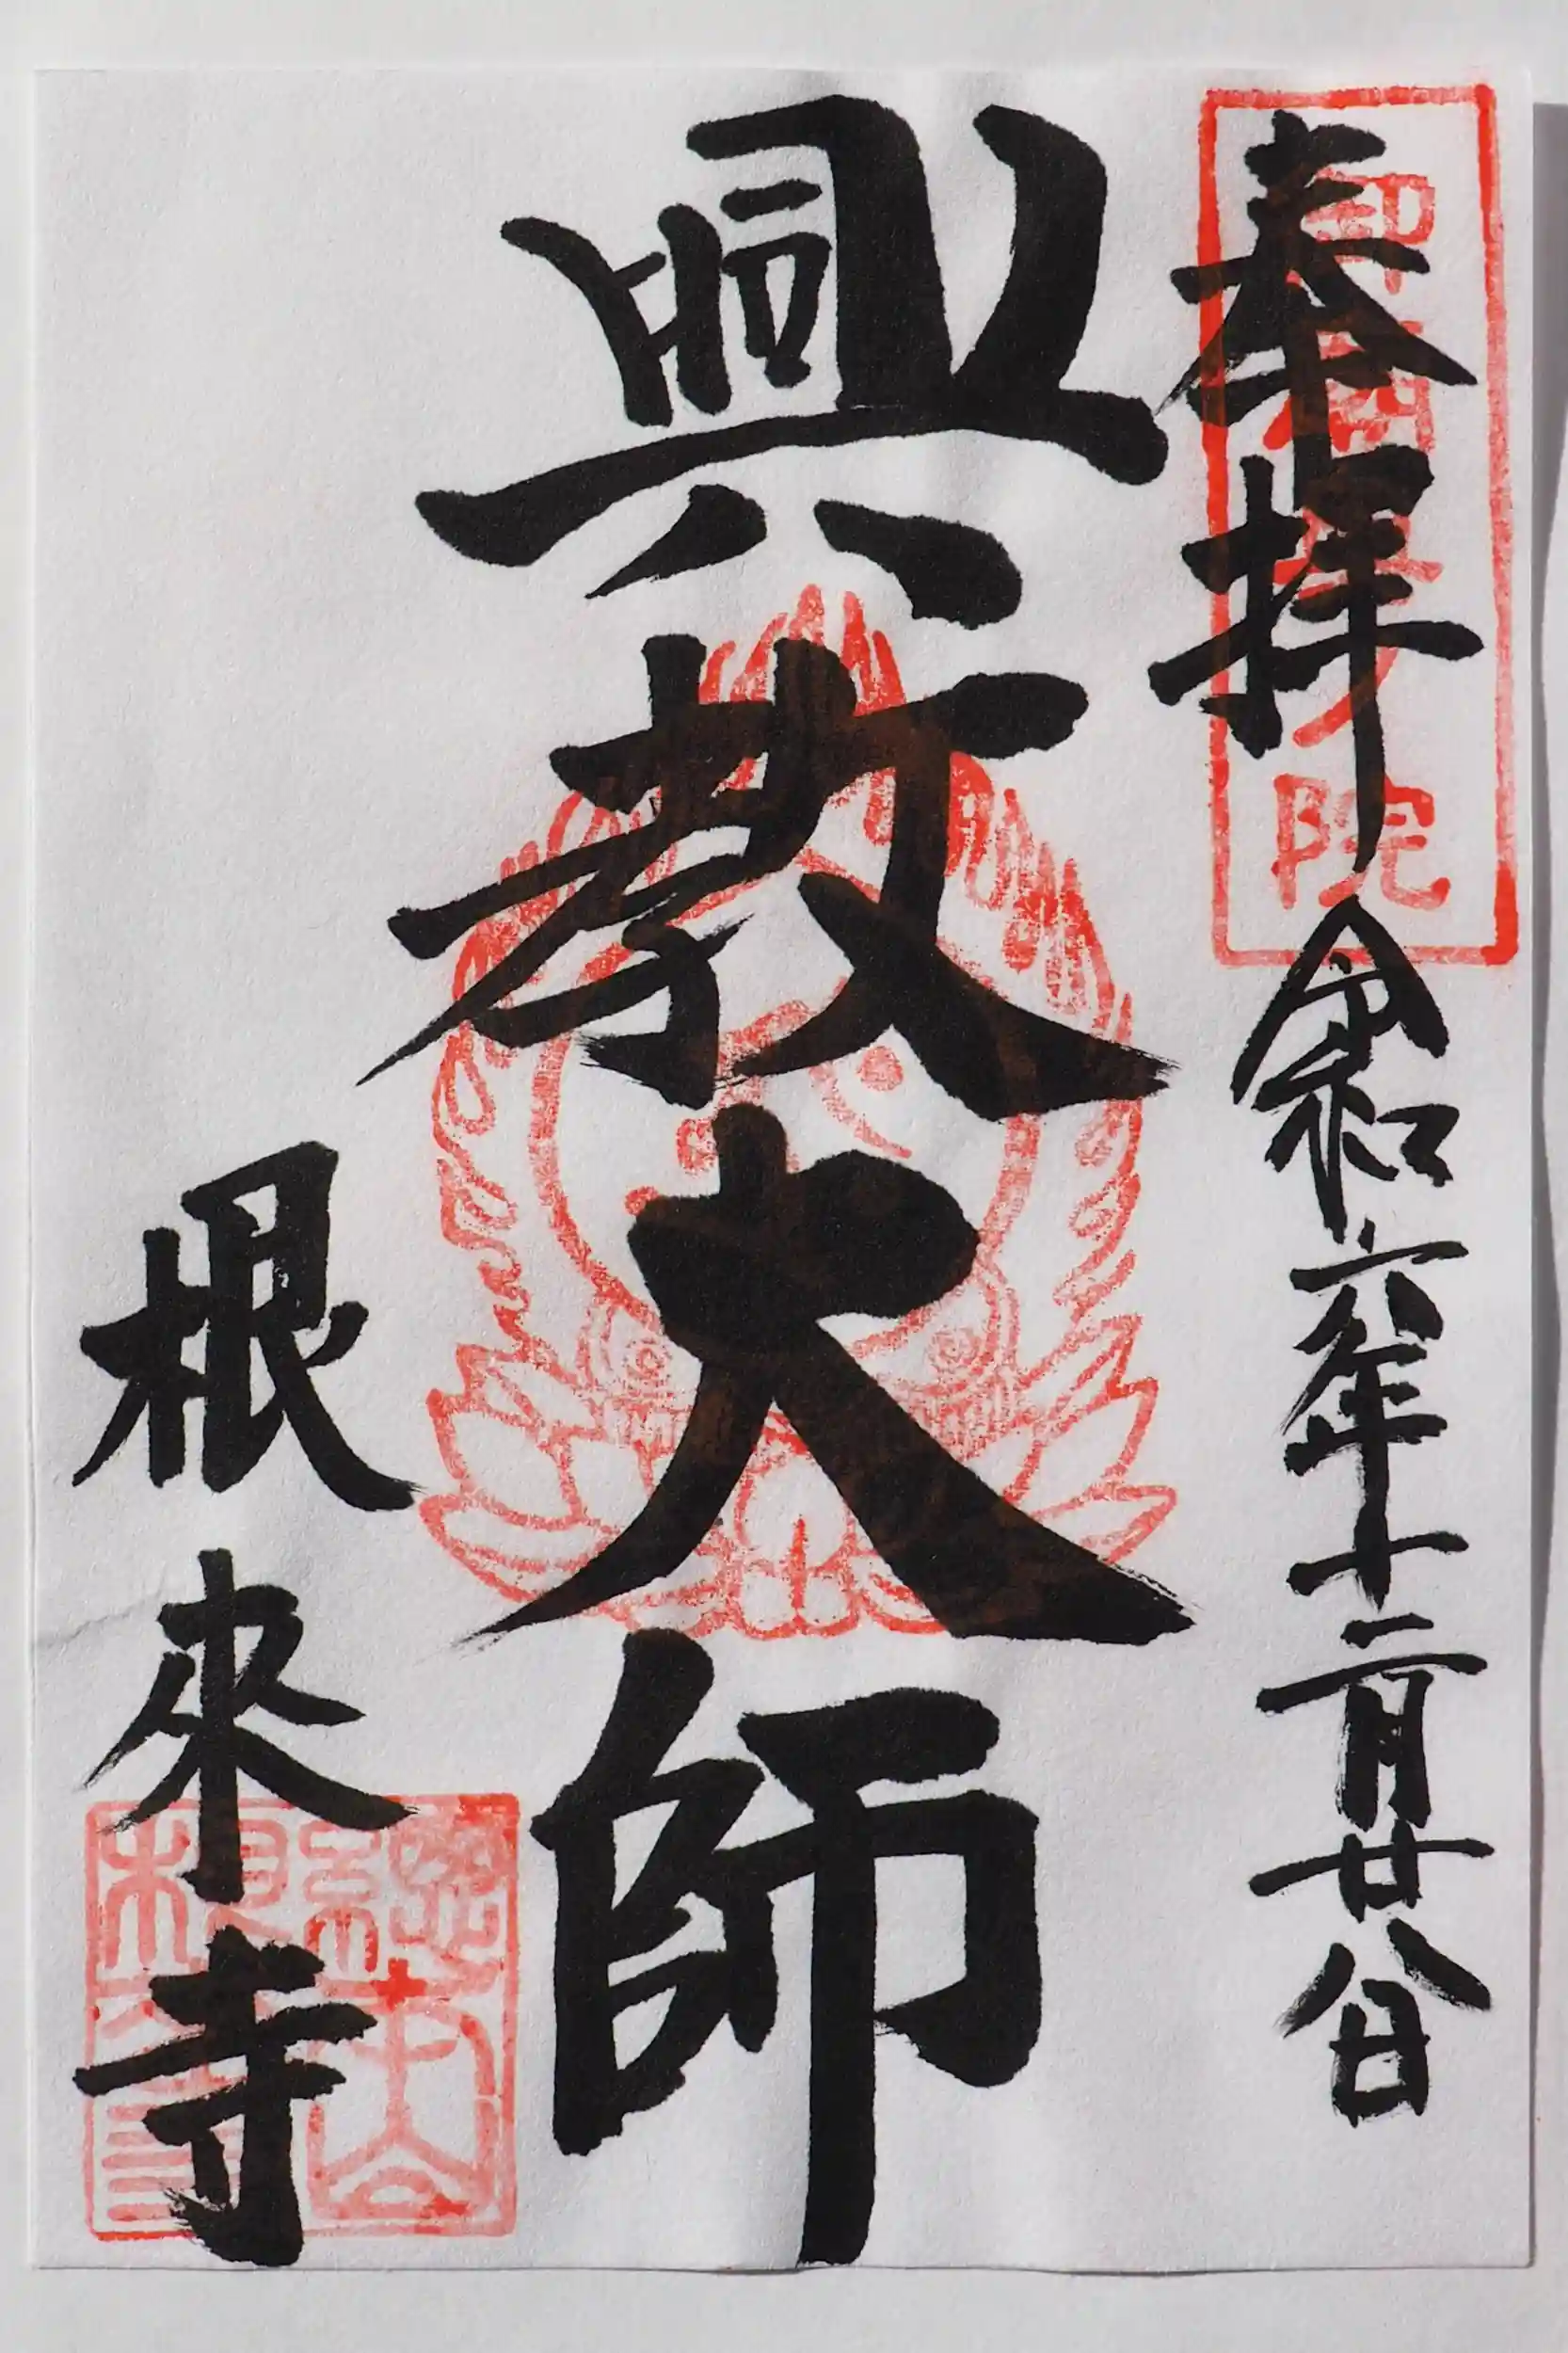 奉拝 令和六年十二月廿八日
興教大師
根來寺